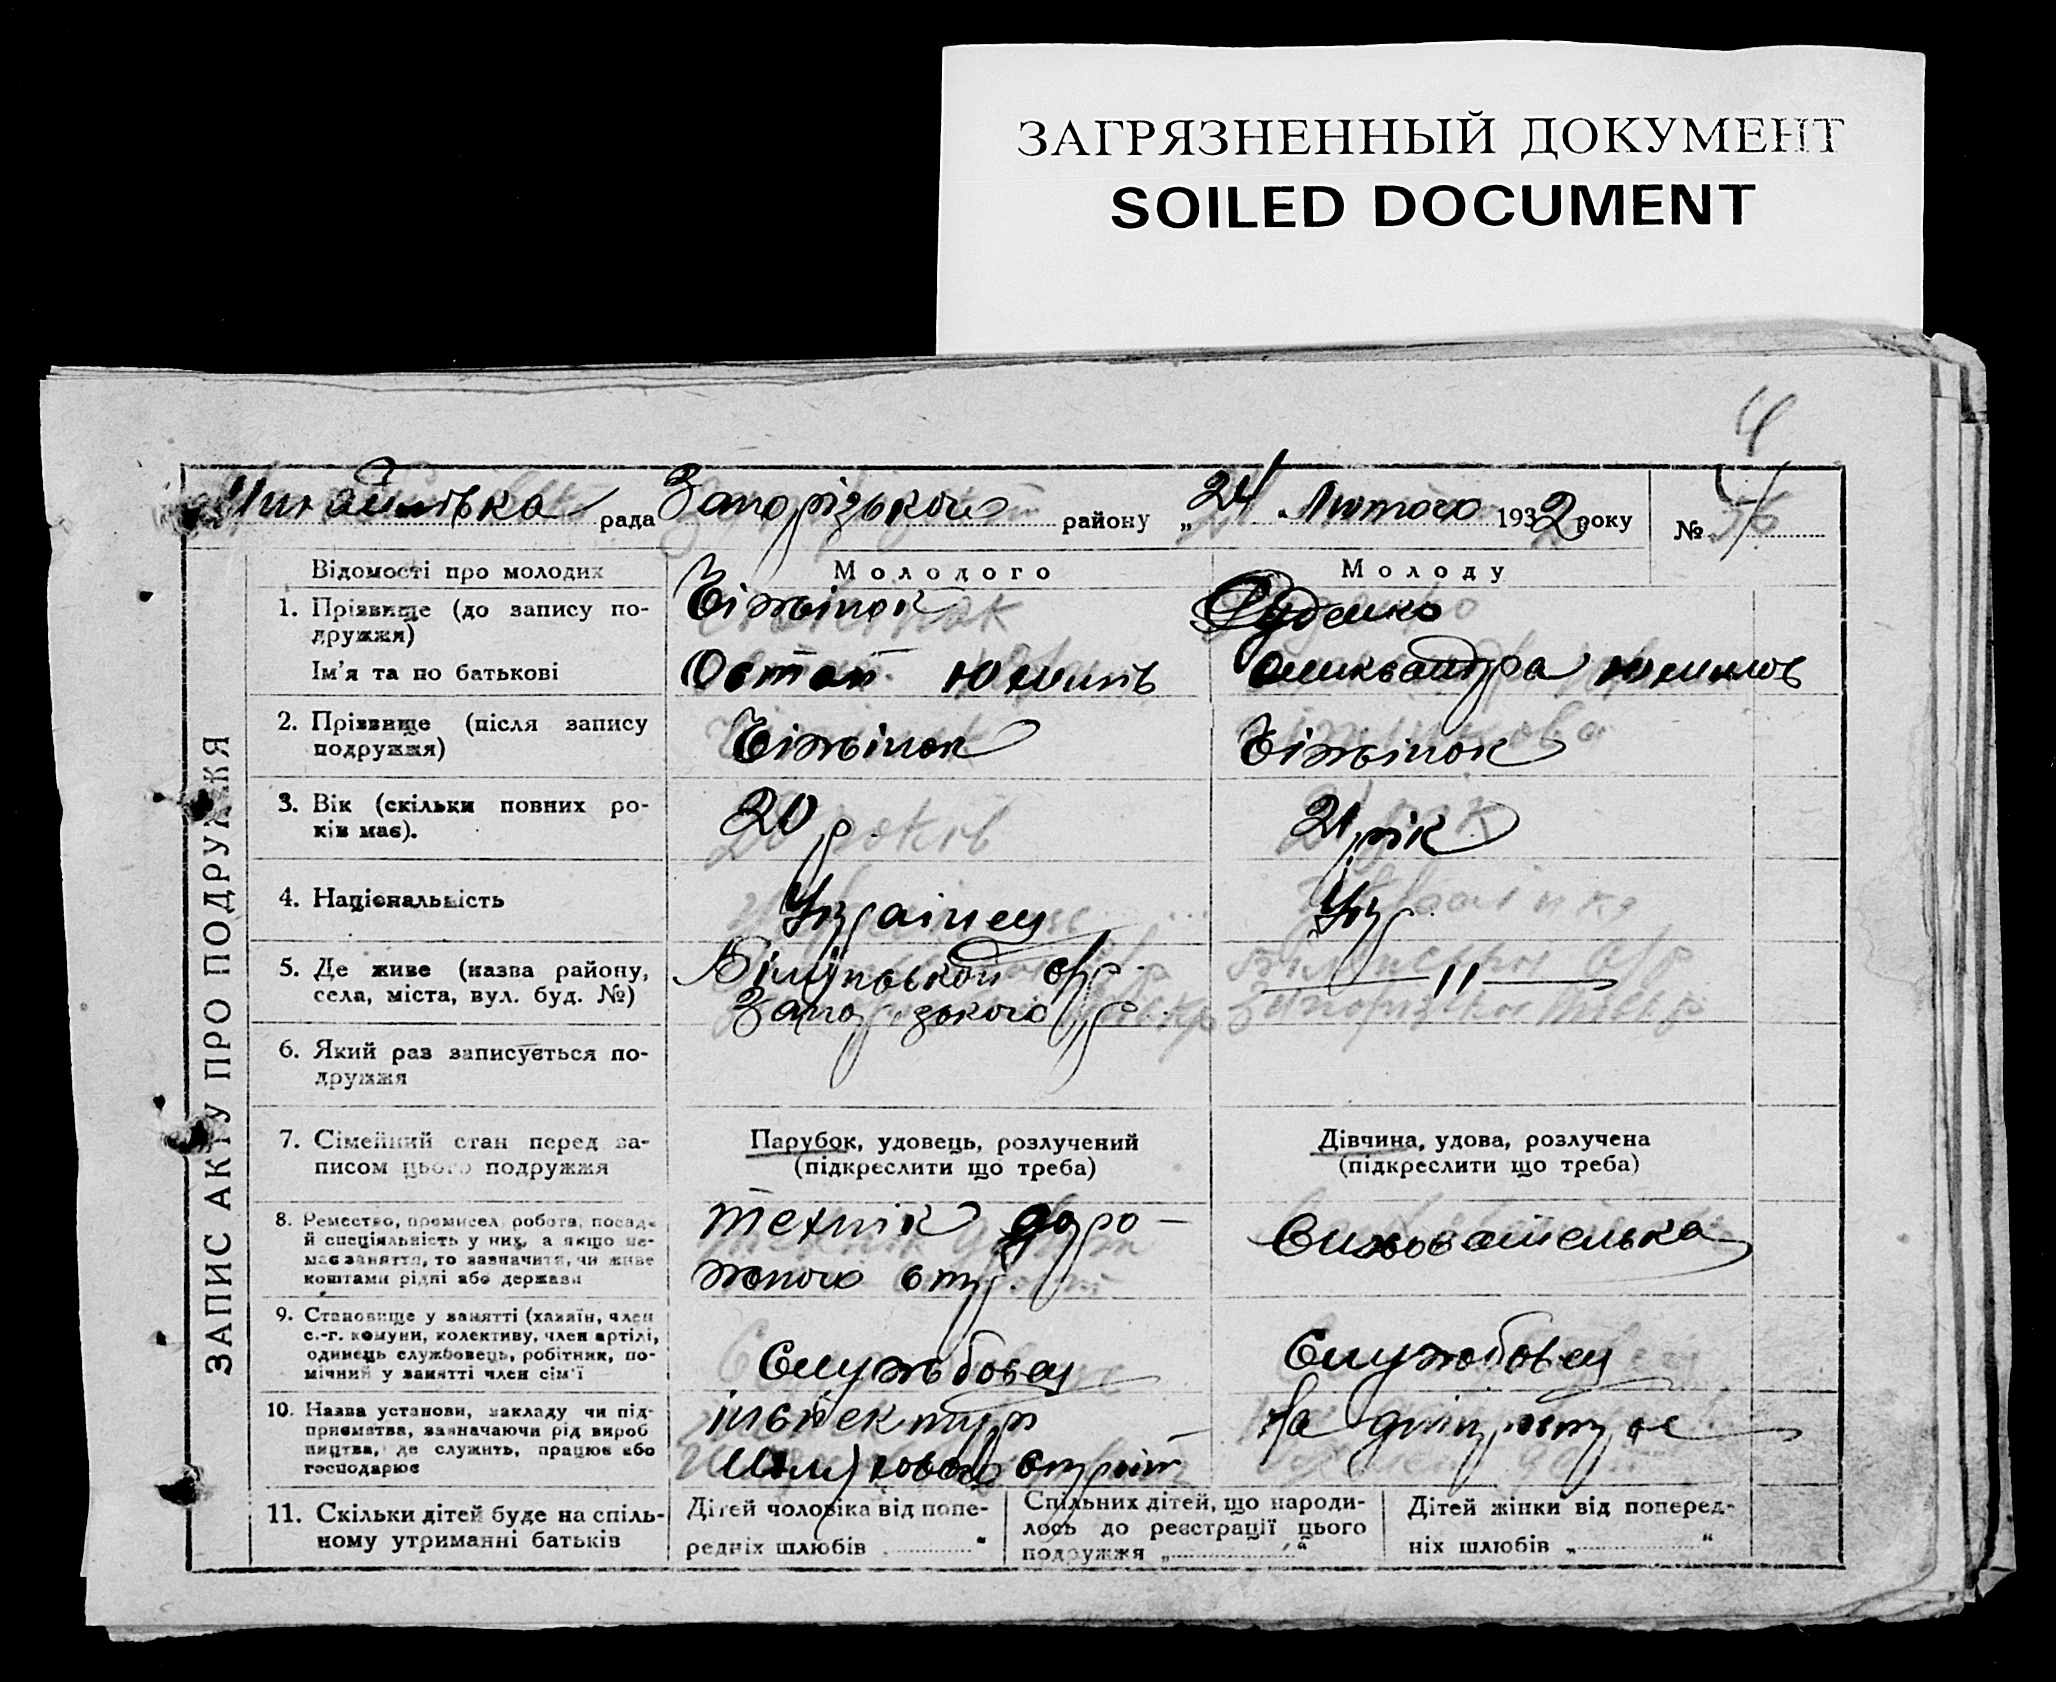 ЗАГРЯЗНЕННЫЙ ДОКУМЕНТ
SOILED DOCUMENT
4
рада Запорізького району „24 Лютого 1932 року № 4
ЗАПИС АКТУ ПРО ПОДРУЖЖЯ
Відомості про молодих Молодого Молоду
1. Прізвище (до запису по-
дружжя)
Руденко
Ім'я та по батькові Остап Юхимів Олександра Юхимов
2. Прізвище (після запису
подружжя)
3. Вік (скільки повних ро-
ків має).
20 р. 21 рік
4. Національність Українец Укр
5. Де живе (назва району,
села, міста, вул. буд. №)
с/р -- 〃 --
Запорізького р.
6. Який раз записується по-
дружжя
7. Сімейний стан перед за-
писом цього подружжя
Парубок, удовець, розлучений
(підкреслити що треба)
Дівчина, удова, розлучена
(підкреслити що треба)
8. Ремество, промисел, робота, посада
й спеціяльність у них, а якщо не-
має заняття, то зазначити, чи живе
коштами рідні або держави
технік доро-
жного
9. Становище у занятті (хазяїн, член
с.-г. комуни, колективу, член артілі,
одинець службовець, робітник, по-
мічний у занятті член сім'ї
Службовец Службовец
10. Назва установи, закладу чи під-
приємства, зазначаючи рід вироб
ництва, де служить, працює або
господарює
На
11. Скільки дітей буде на спіль-
ному утриманні батьків
Дітей чоловіка від попе-
редніх шлюбів “
Спільних дітей, що народи-
лось до реєстрації цього
подружжя „ “
Дітей жінки від поперед-
ніх шлюбів „ “